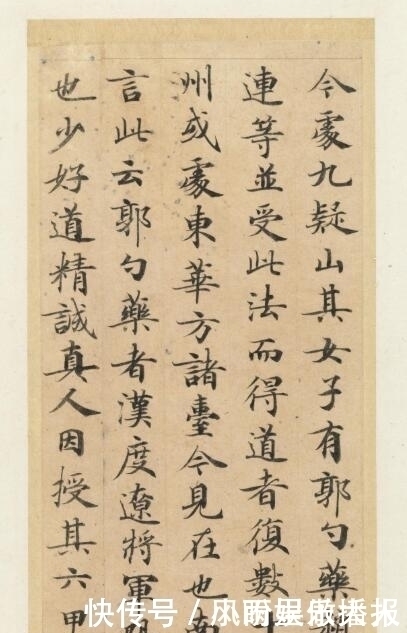 今處九疑山其女子有郭勺藥
連等並受此法而得道者復數
州或處東華方諸臺今見在也南
言此云郭勺藥者漢度遼將軍
也少好道精誠真人因授其六甲
快传号/